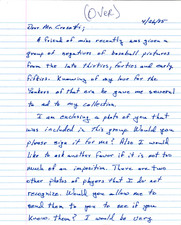 (OVER)
4/26/95
Dear Mr. Crosetti;
A friend of mine recently was given a
group of negatives of baseball pictures
from the late thirties, forties and early
fifties. Knowing of my love for the
Yankees of that era he gave me several
to add to my collection.
I am enclosing a photo of you that
was included in this group. Would you
please sign it for me? Also I would
like to ask another favor if it is not too
much of an imposition. There are two
other photos of players that I do not
recognize. Would you allow me to
send them to you to see if you
know them? I would be very